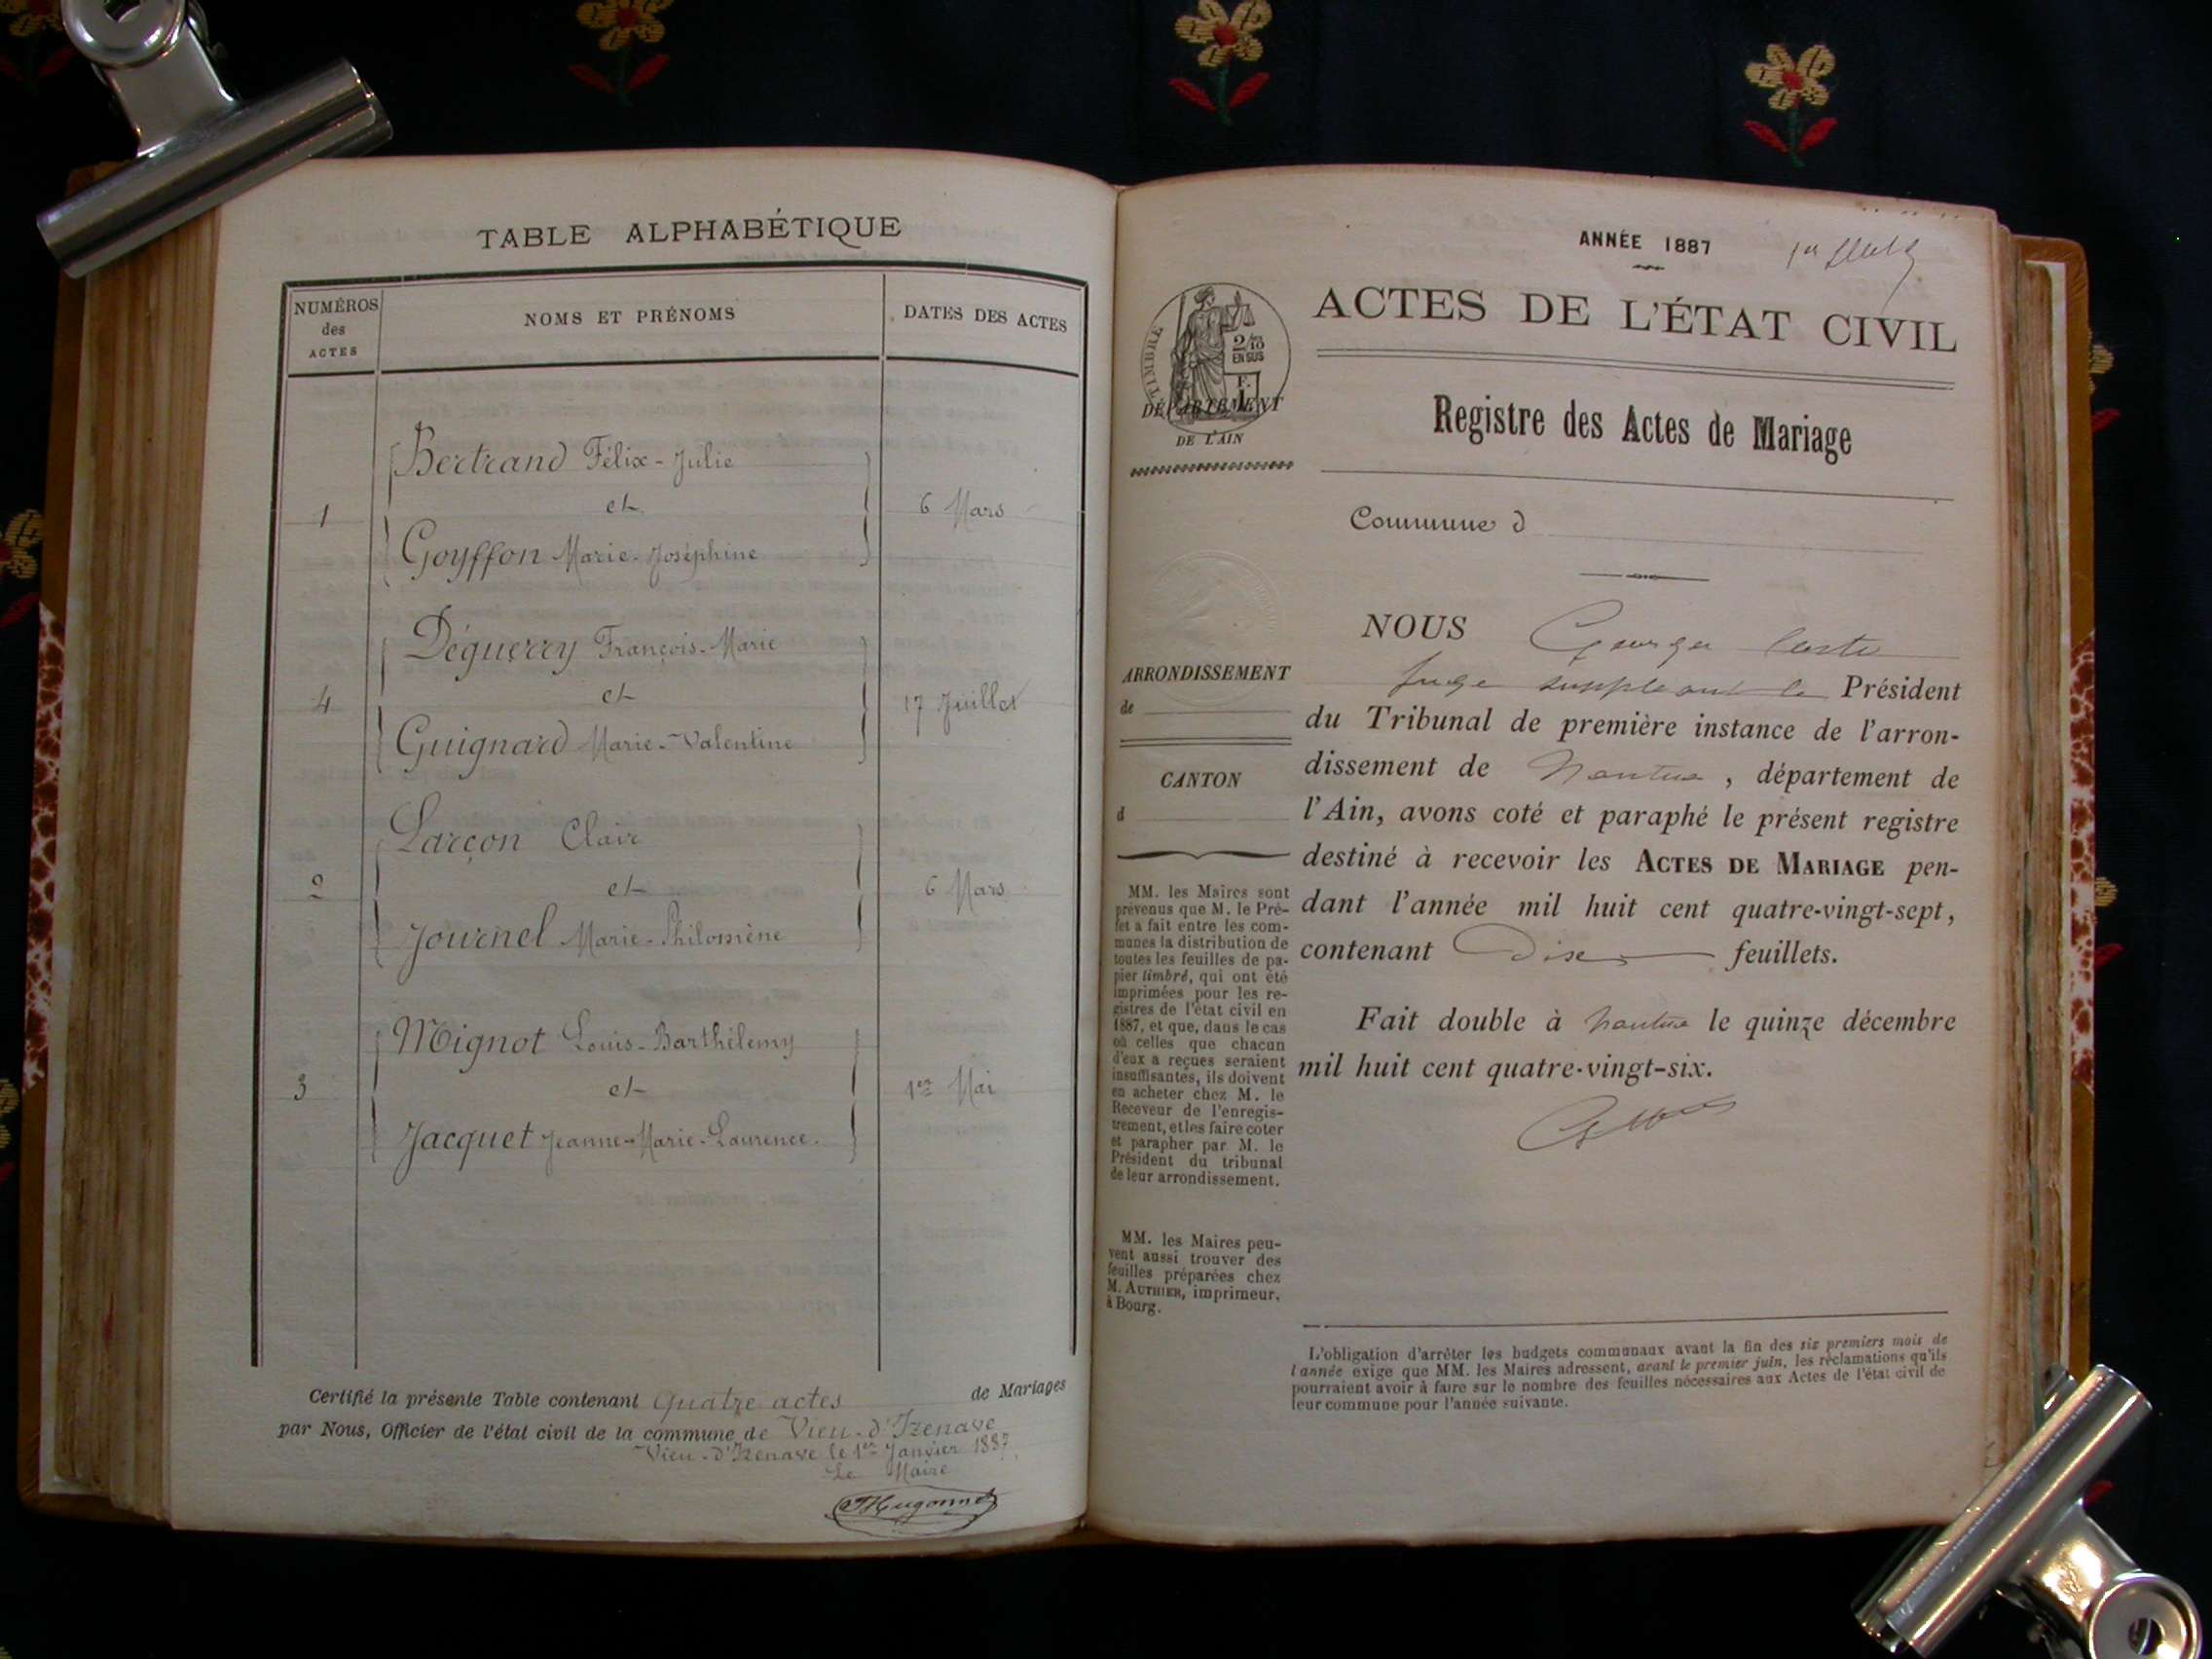 TABLE ALPHABÉTIQUE
NUMÉROS
des
ACTES
NOMS ET PRÉNOMS
DATES DES ACTES
Bertrand Félix-Julie
1
et
6 Mars
Goyffon Marie-Joséphine
Déguerry François-Marie
4
et
17 Juillet
Guignard Marie-Valentine
Larçon Clair
2
et
6 Mars
Journel Marie-Philomène
Mignot Louis-Barthélemy
3
et
1er Mai
Jacquet Jeanne-Marie-Laurence.
Certifié la présente Table contenant Quatre actes de Mariages
par Nous, Officier de l'état civil de la commune de Vieu-d'Izenave
Vieu-d'Izenave le 1er Janvier 1887
Le Maire
Hugonnet
ANNÉE 1887
ACTES DE L'ÉTAT CIVIL
TIMBRE
2/10
EN SUS
F.
1
DÉPARTEMENT
DE L'AIN
Registre des Actes de Mariage
Commune d
NOUS Georges
ARRONDISSEMENT
de
CANTON
d
juge suppléant le Président
du Tribunal de première instance de l'arron-
dissement de Nantua, département de
l'Ain, avons coté et paraphé le présent registre
destiné à recevoir les ACTES DE MARIAGE pen-
dant l'année mil huit cent quatre-vingt-sept,
contenant Dix feuillets.
Fait double à Nantua le quinze décembre
mil huit cent quatre-vingt-six.
MM. les Maires sont
prévenus que M. le Pré-
fet a fait entre les com-
munes la distribution de
toutes les feuilles de pa-
pier timbré, qui ont été
imprimées pour les re-
gistres de l'état civil en
1887, et que, dans le cas
où celles que chacun
d'eux a reçues seraient
insuffisantes, ils doivent
en acheter chez M. le
Receveur de l'enregis-
trement, et les faire coter
et parapher par M. le
Président du tribunal
de leur arrondissement.
MM. les Maires peu-
vent aussi trouver des
feuilles préparées chez
M. AUTHIER, imprimeur,
à Bourg.
L'obligation d'arrêter les budgets communaux avant la fin des six premiers mois de
l'année exige que MM. les Maires adressent, avant le premier juin, les réclamations qu'ils
pourraient avoir à faire sur le nombre des feuilles nécessaires aux Actes de l'état civil de
leur commune pour l'année suivante.